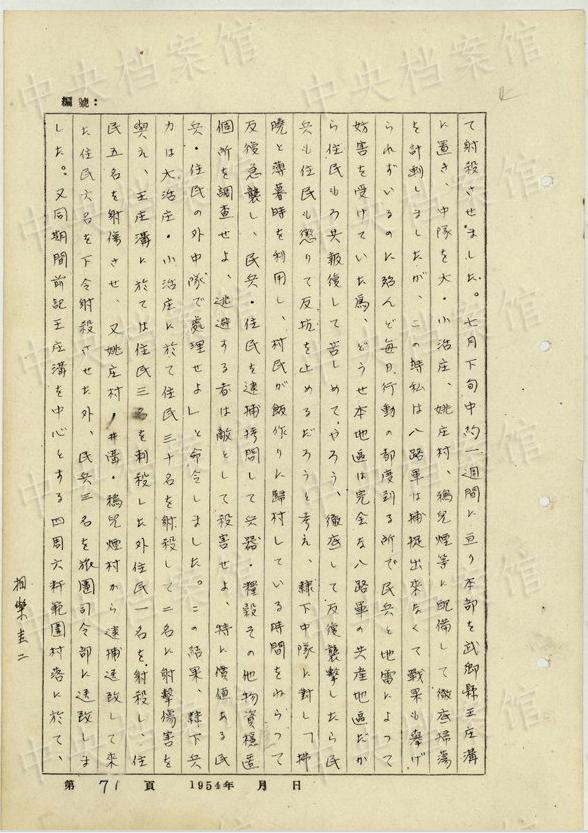 編號：
て射殺させました。七月下旬中約一週間に亘り本部を武郷縣王庄溝
に置き、中隊を大・小治庄、姚庄村、鴉兒煙等に配備して徹底掃蕩
を計劃しましたが、この時私は八路軍は捕捉出來なくて戰果も挙げ
られずいるのに殆んど毎日行動の都度到る所で民兵と地雷によって
妨害を受けていた爲、どうせ本地區は完全な八路軍の共産地區だか
ら住民もろ共報復して苦しめてやろう、徹底して反復襲撃したら民
兵も住民も懲りて反抗を止めるだろうと考え、隷下中隊に対し「拂
曉と薄暮時を利用し、村民が飯作りに歸村している時間をねらって
反復急襲し、民兵・住民を逮捕拷問して兵器・糧穀その他物資隠匿
個所を調査せよ、逃避する者は敵として殺害せよ、特に價値ある民
兵・住民の外中隊で處理せよ」と命令しました。この結果、隷下兵
力は大治庄・小治庄に於て住民三十名を射殺して二名に射撃傷害を
與え、王庄溝に於ては住民三名を刺殺した外住民一名を射殺し、住
民五名を射傷させ、又姚庄村・井溝・鴉兒煙村から逮捕連致して来
た住民六名を下令射殺させた外、民兵三名を旅團司令部に連致しま
した。又同期間前記王庄溝を中心とする四周六粁範圍村落に於て、
相樂圭二
第 71 頁 1954年 月 日
中央档案馆